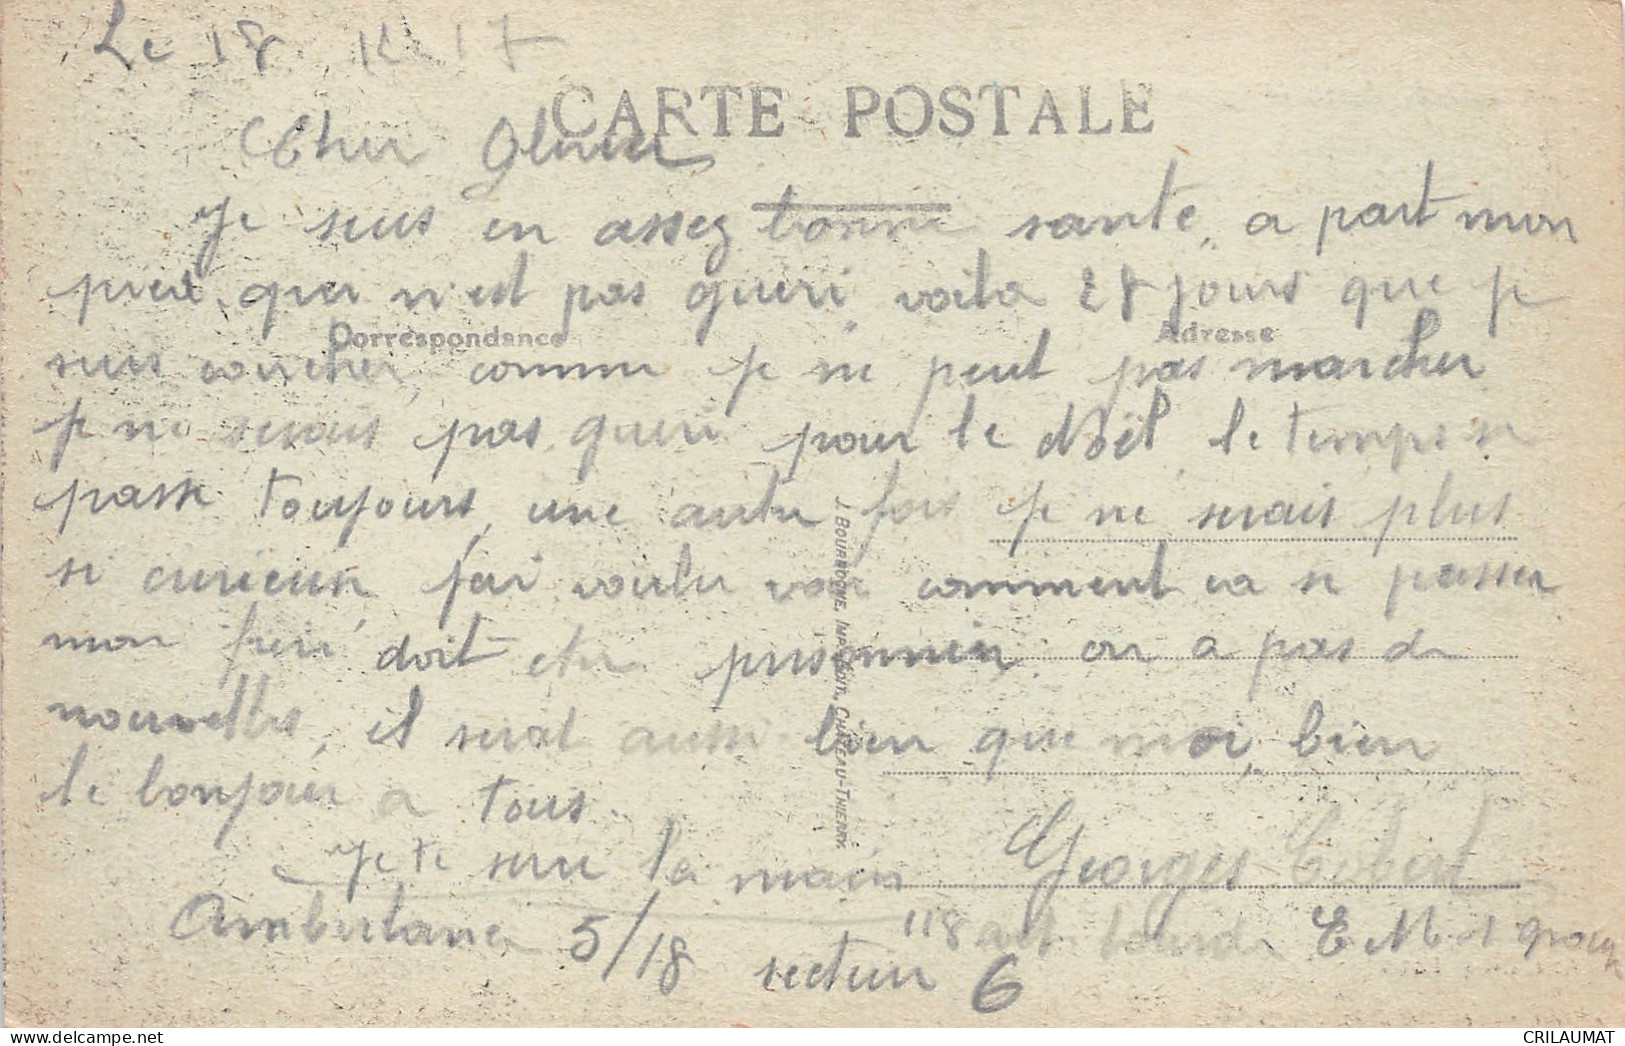 Le 18 12 17
CARTE POSTALE
Cher Olivier
Je suis en assez bonne santé, a part mon
pied, qui n'est pas gueri, voila 28 jours que je
Correspondance
Adresse
suis coucher, comme je ne peut pas marcher
je ne serais pas gueri pour le Noël, le temps se
passe toujours, une autre fois je ne serais plus
si curieux, j'ai voulu voir comment ca se passer
mon frere doit etre prisonnier on a pas de
nouvelles, il serat aussi bien que moi, bien
le bonjour a tous.
Je te serre la main Georges
Ambulance 5/18 118 art. lourde E. M. 1 groupe
secteur 6
J. BOURGOGNE, IMP.-ÉDIT., CHATEAU-THIERRY.
CRILAUMAT